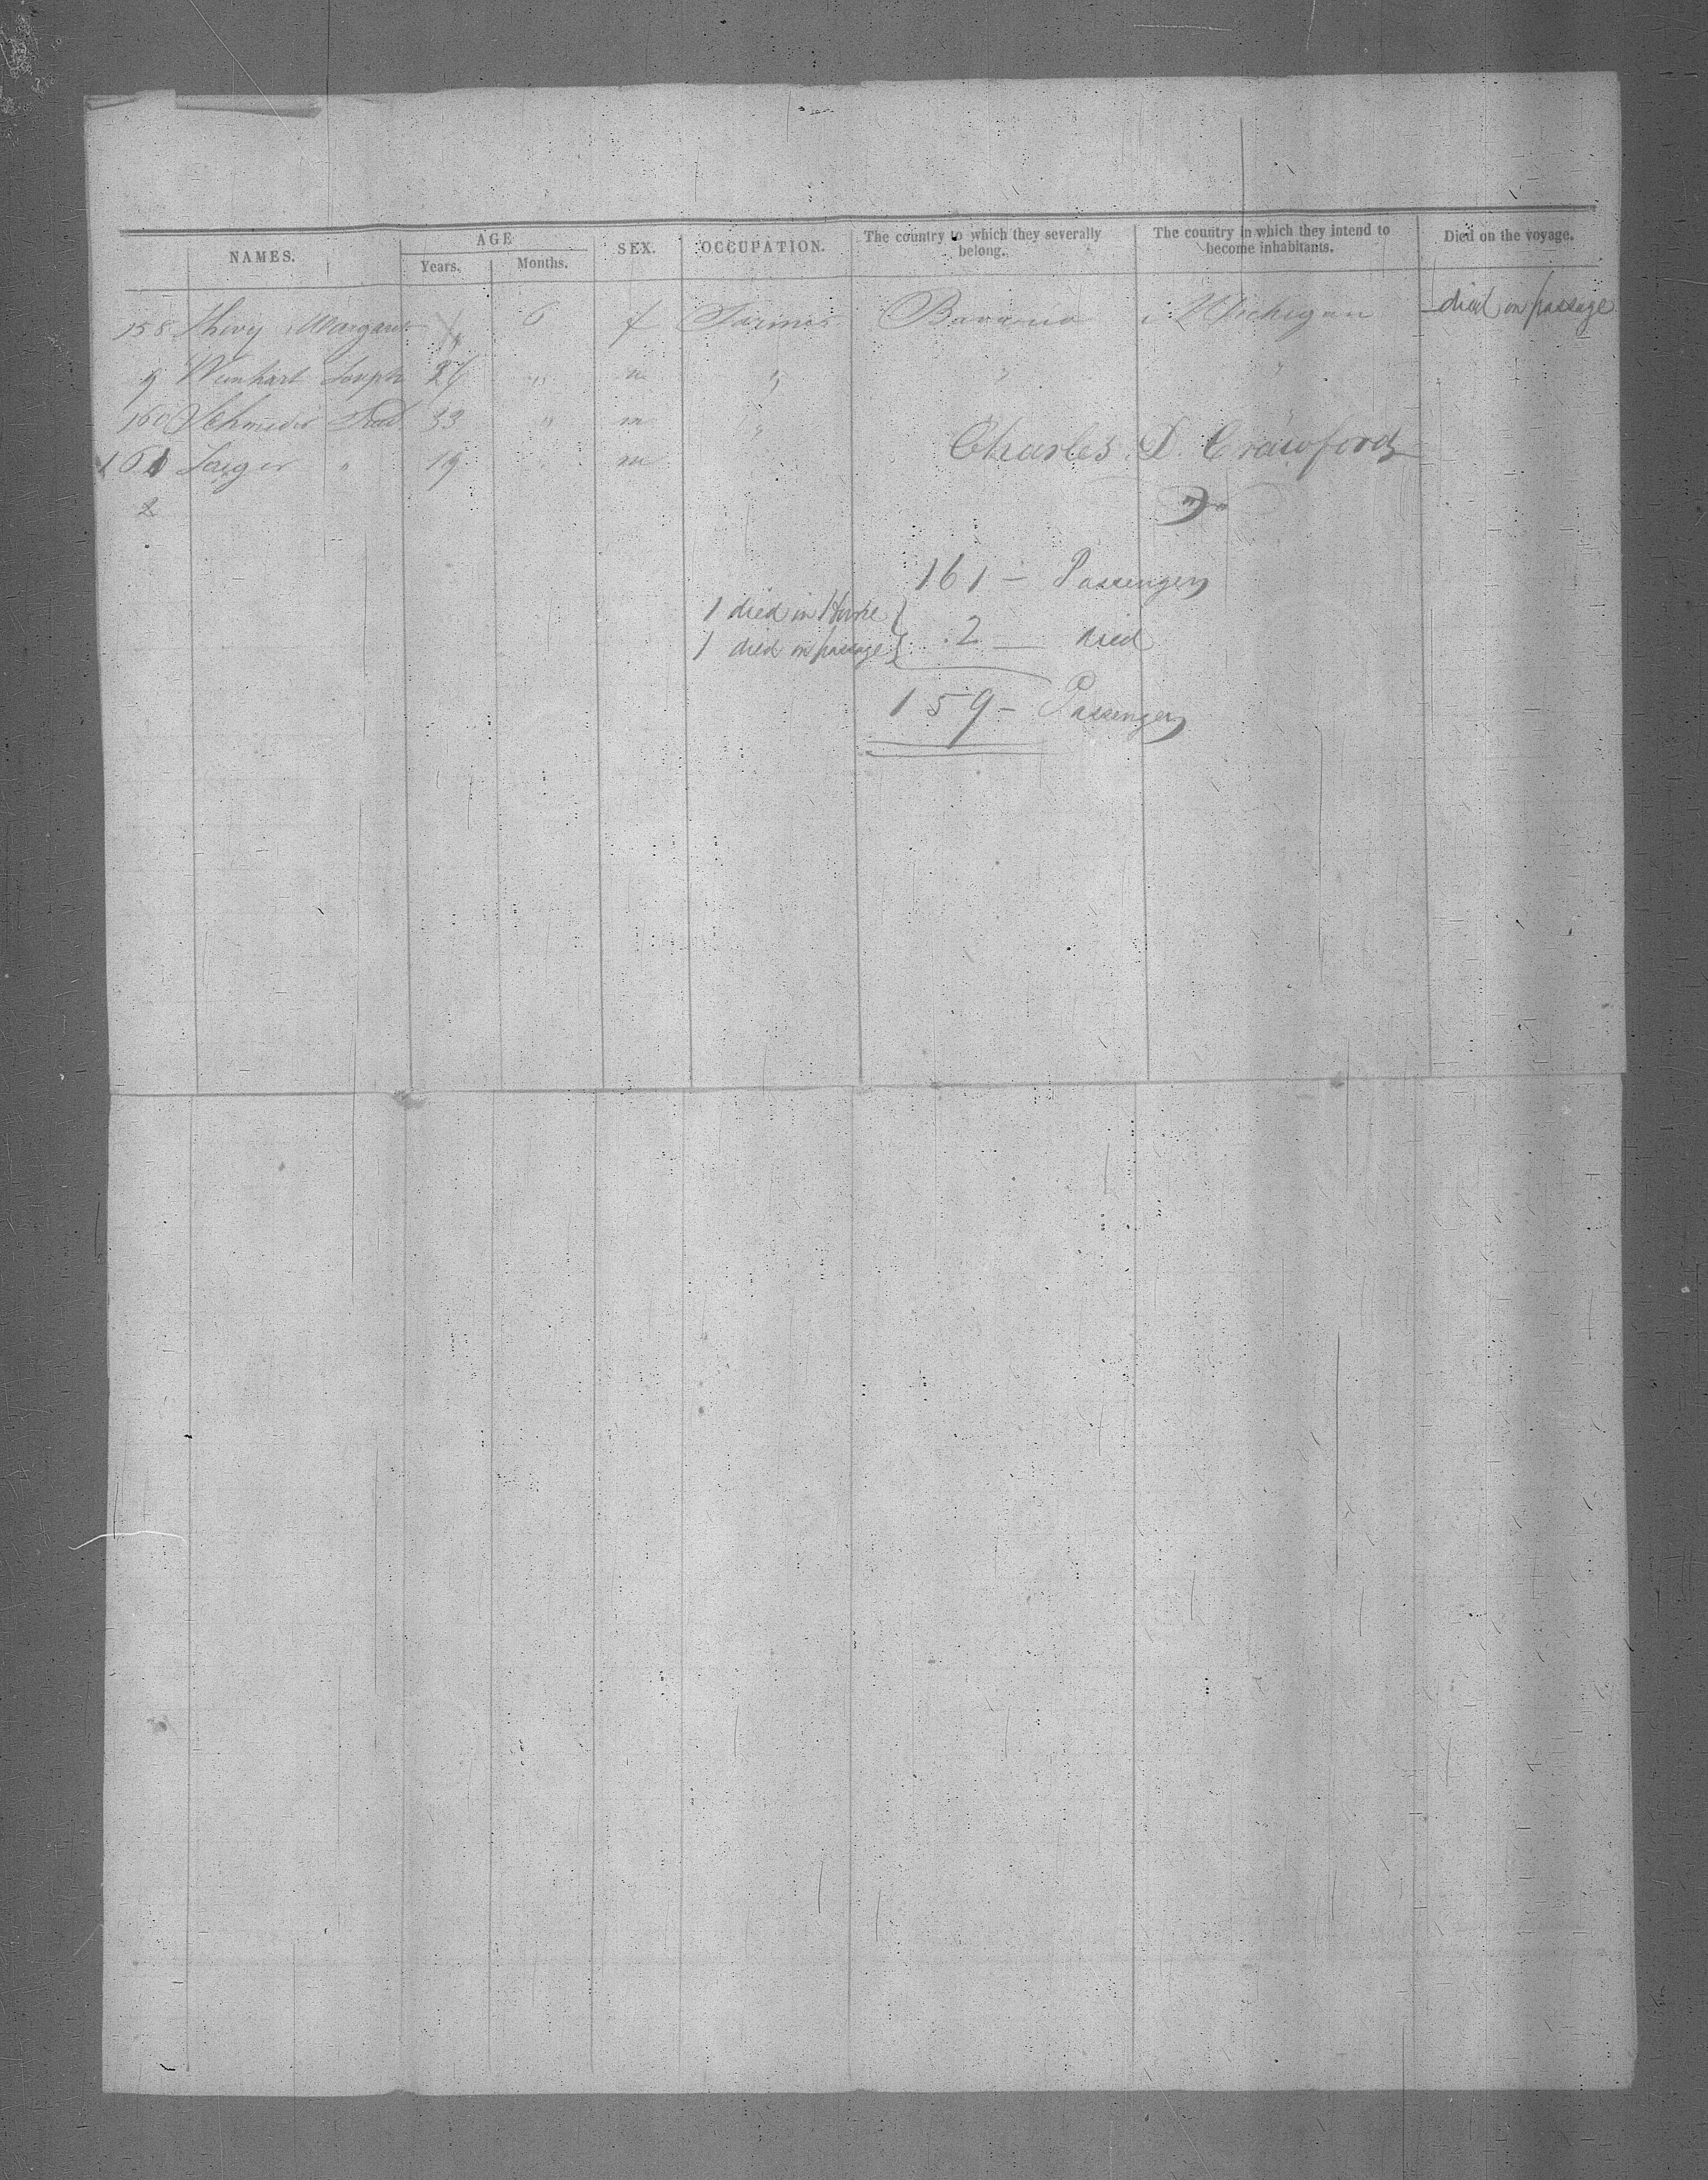 NAMES. AGE SEX. OCCUPATION. The country to which they severally belong. The country in which they intend to become inhabitants. Died on the voyage.
Years. Months.
158 Margaret 6 f Farmer Bavaria " Michigan died on passage
9 Weinhart Joseph " m " " "
160 Schneider Fred 33 " m " " "
161 Jaeger " 19 " m
Charles D. Crawford
2
161 - Passengers
1 died in Havre
1 died on passage } 2 — died
159 - Passengers